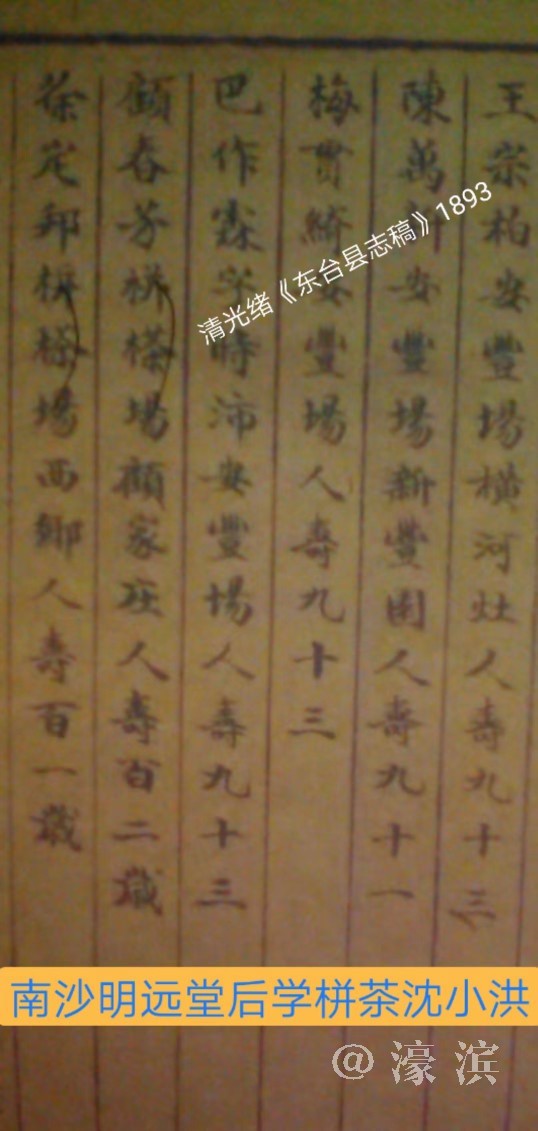 王宗柏安豐場橫河灶人壽九十三
陳萬 安豐場新豐團人壽九十一
梅貫 安豐場人壽九十三
巴作霖字時沛安豐場人壽九十三
顧春芳栟樣場顧家庄人壽百二歲
茶定邦栟樣場西鄉人壽百一歲
清光绪《东台县志稿》1893
南沙明远堂后学栟茶沈小洪
@濠滨